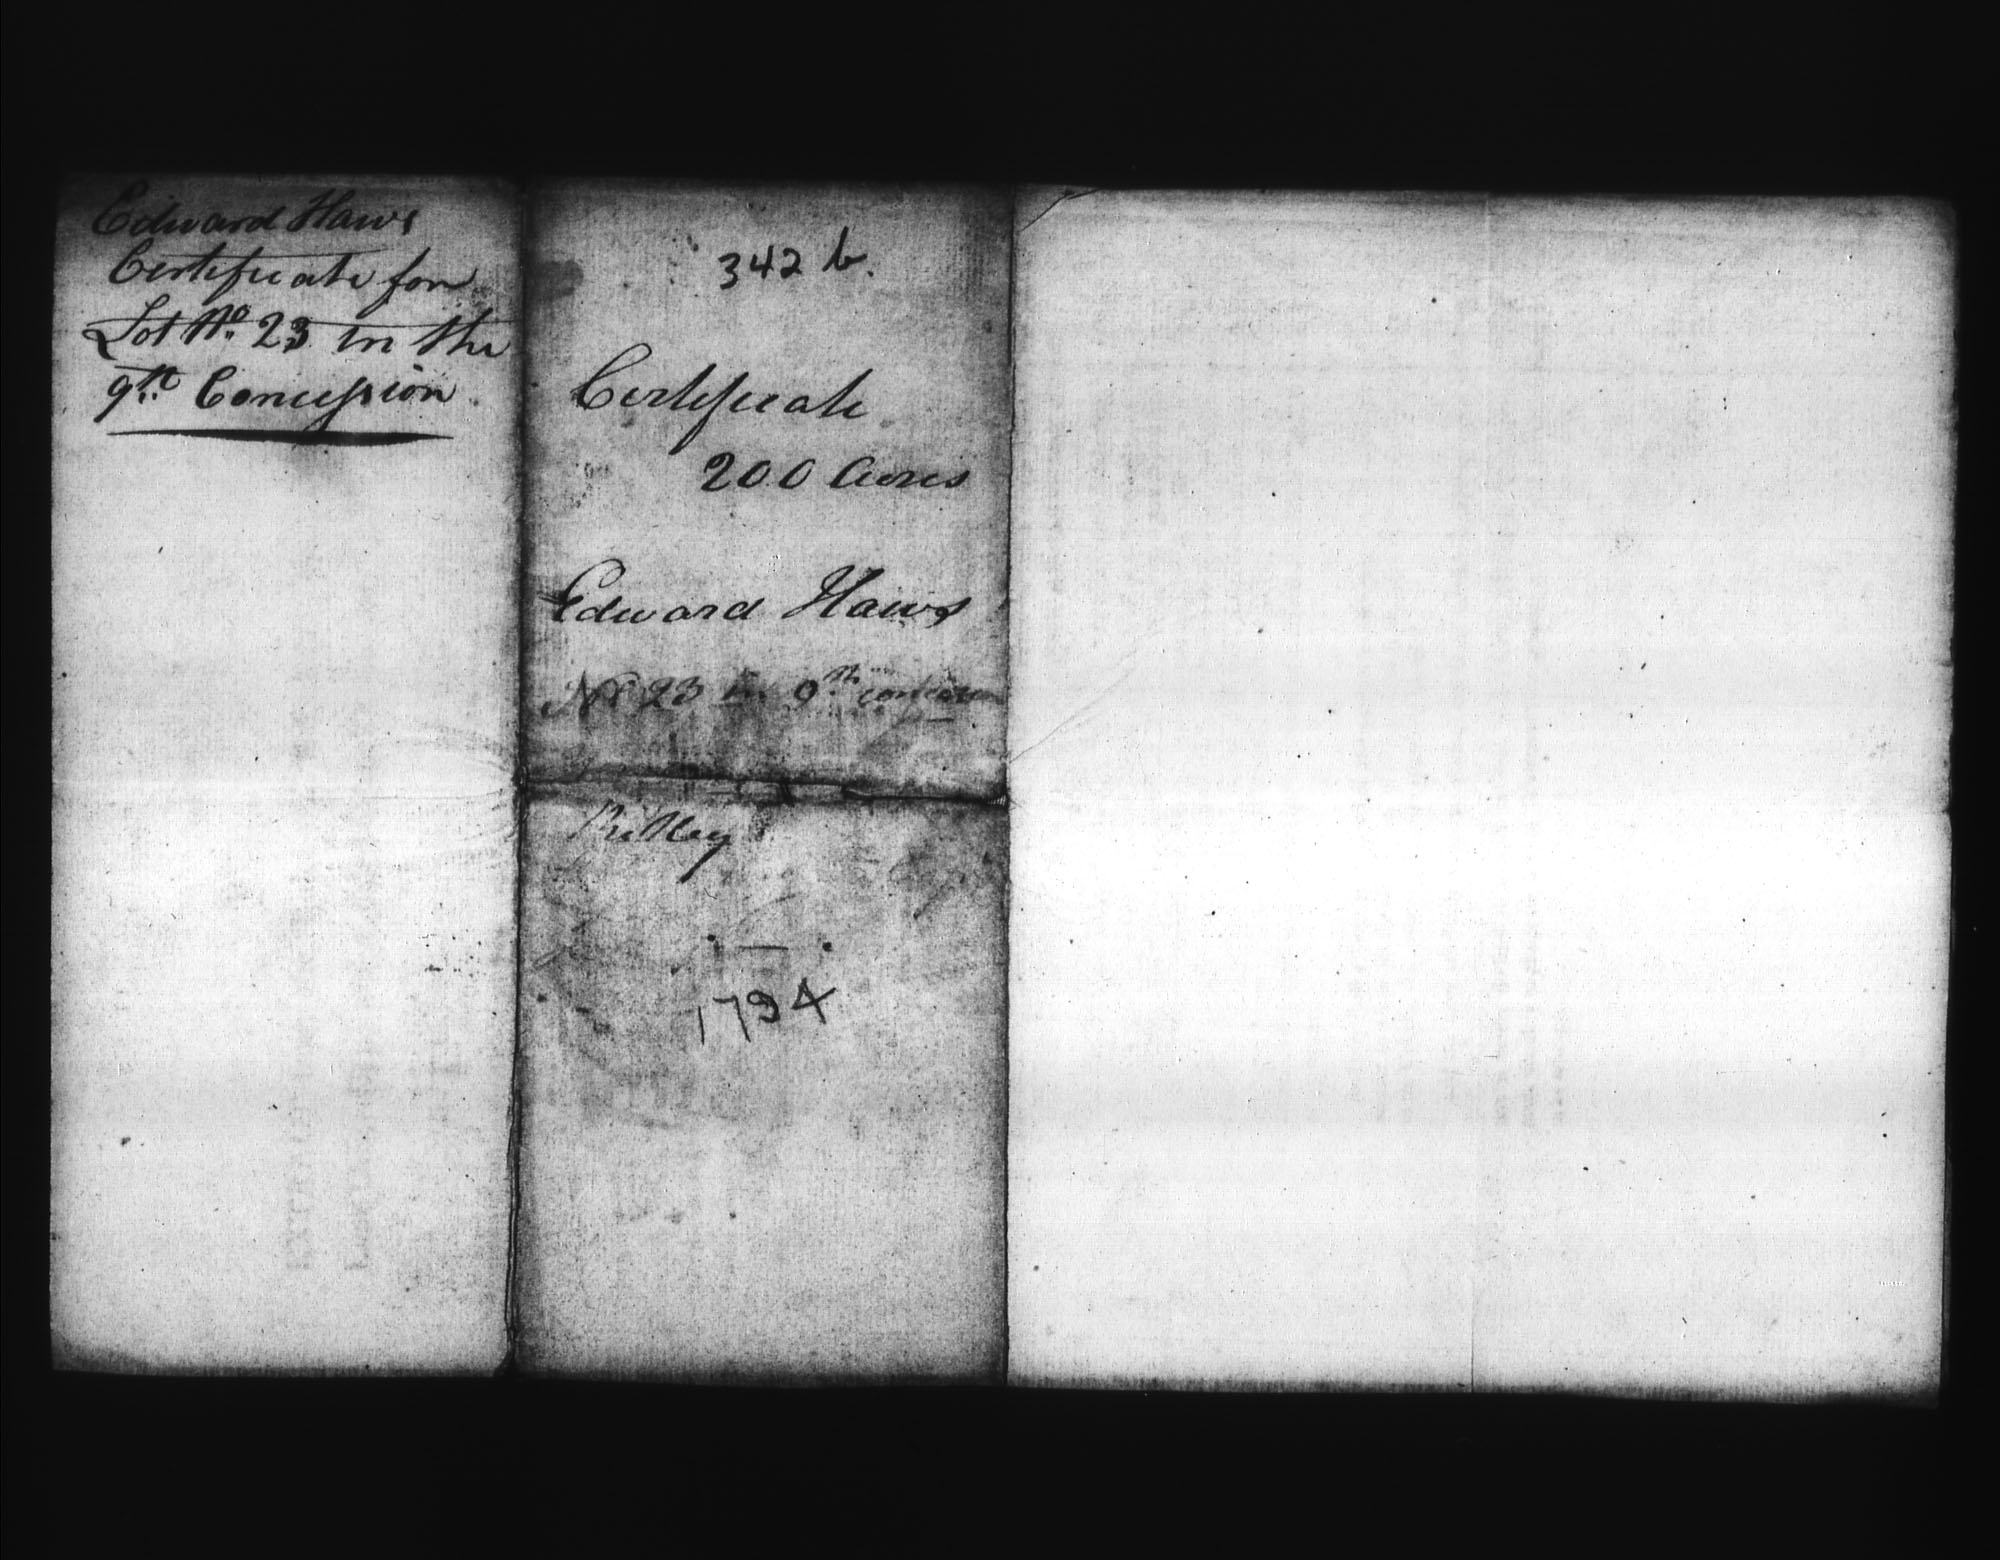 Edward Haws
Certificate for
Lot No. 23 in the
9th Concession
342 b.
Certificate
200 Acres
Edward Haws
No 23 in 9th concession
1794